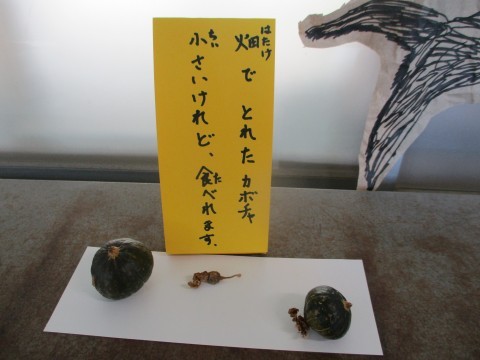 畑で とれた カボチャ
はたけ
小さいけれど、食べれます。
ちい
た